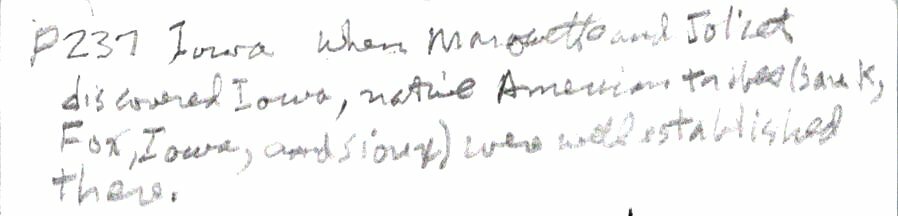 P237 Iowa When Marquette and Joliet
discovered Iowa, native American tribes (Sauk,
Fox, Iowa, and Sioux) were well established
there.